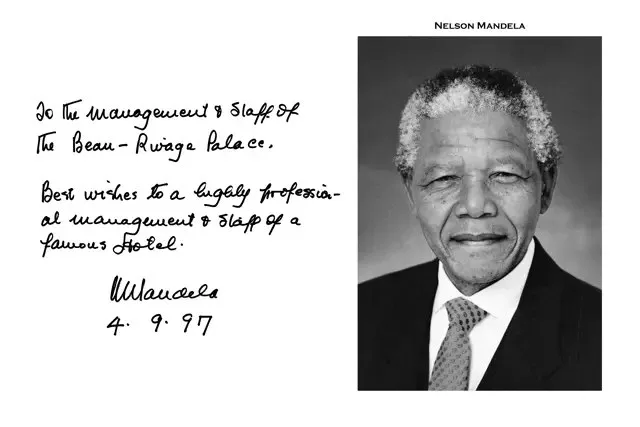 Nelson Mandela
To the management & staff of
the Beau-Rivage Palace.
Best wishes to a highly profession-
al management & staff of a
famous Hotel.
NMandela
4. 9. 97